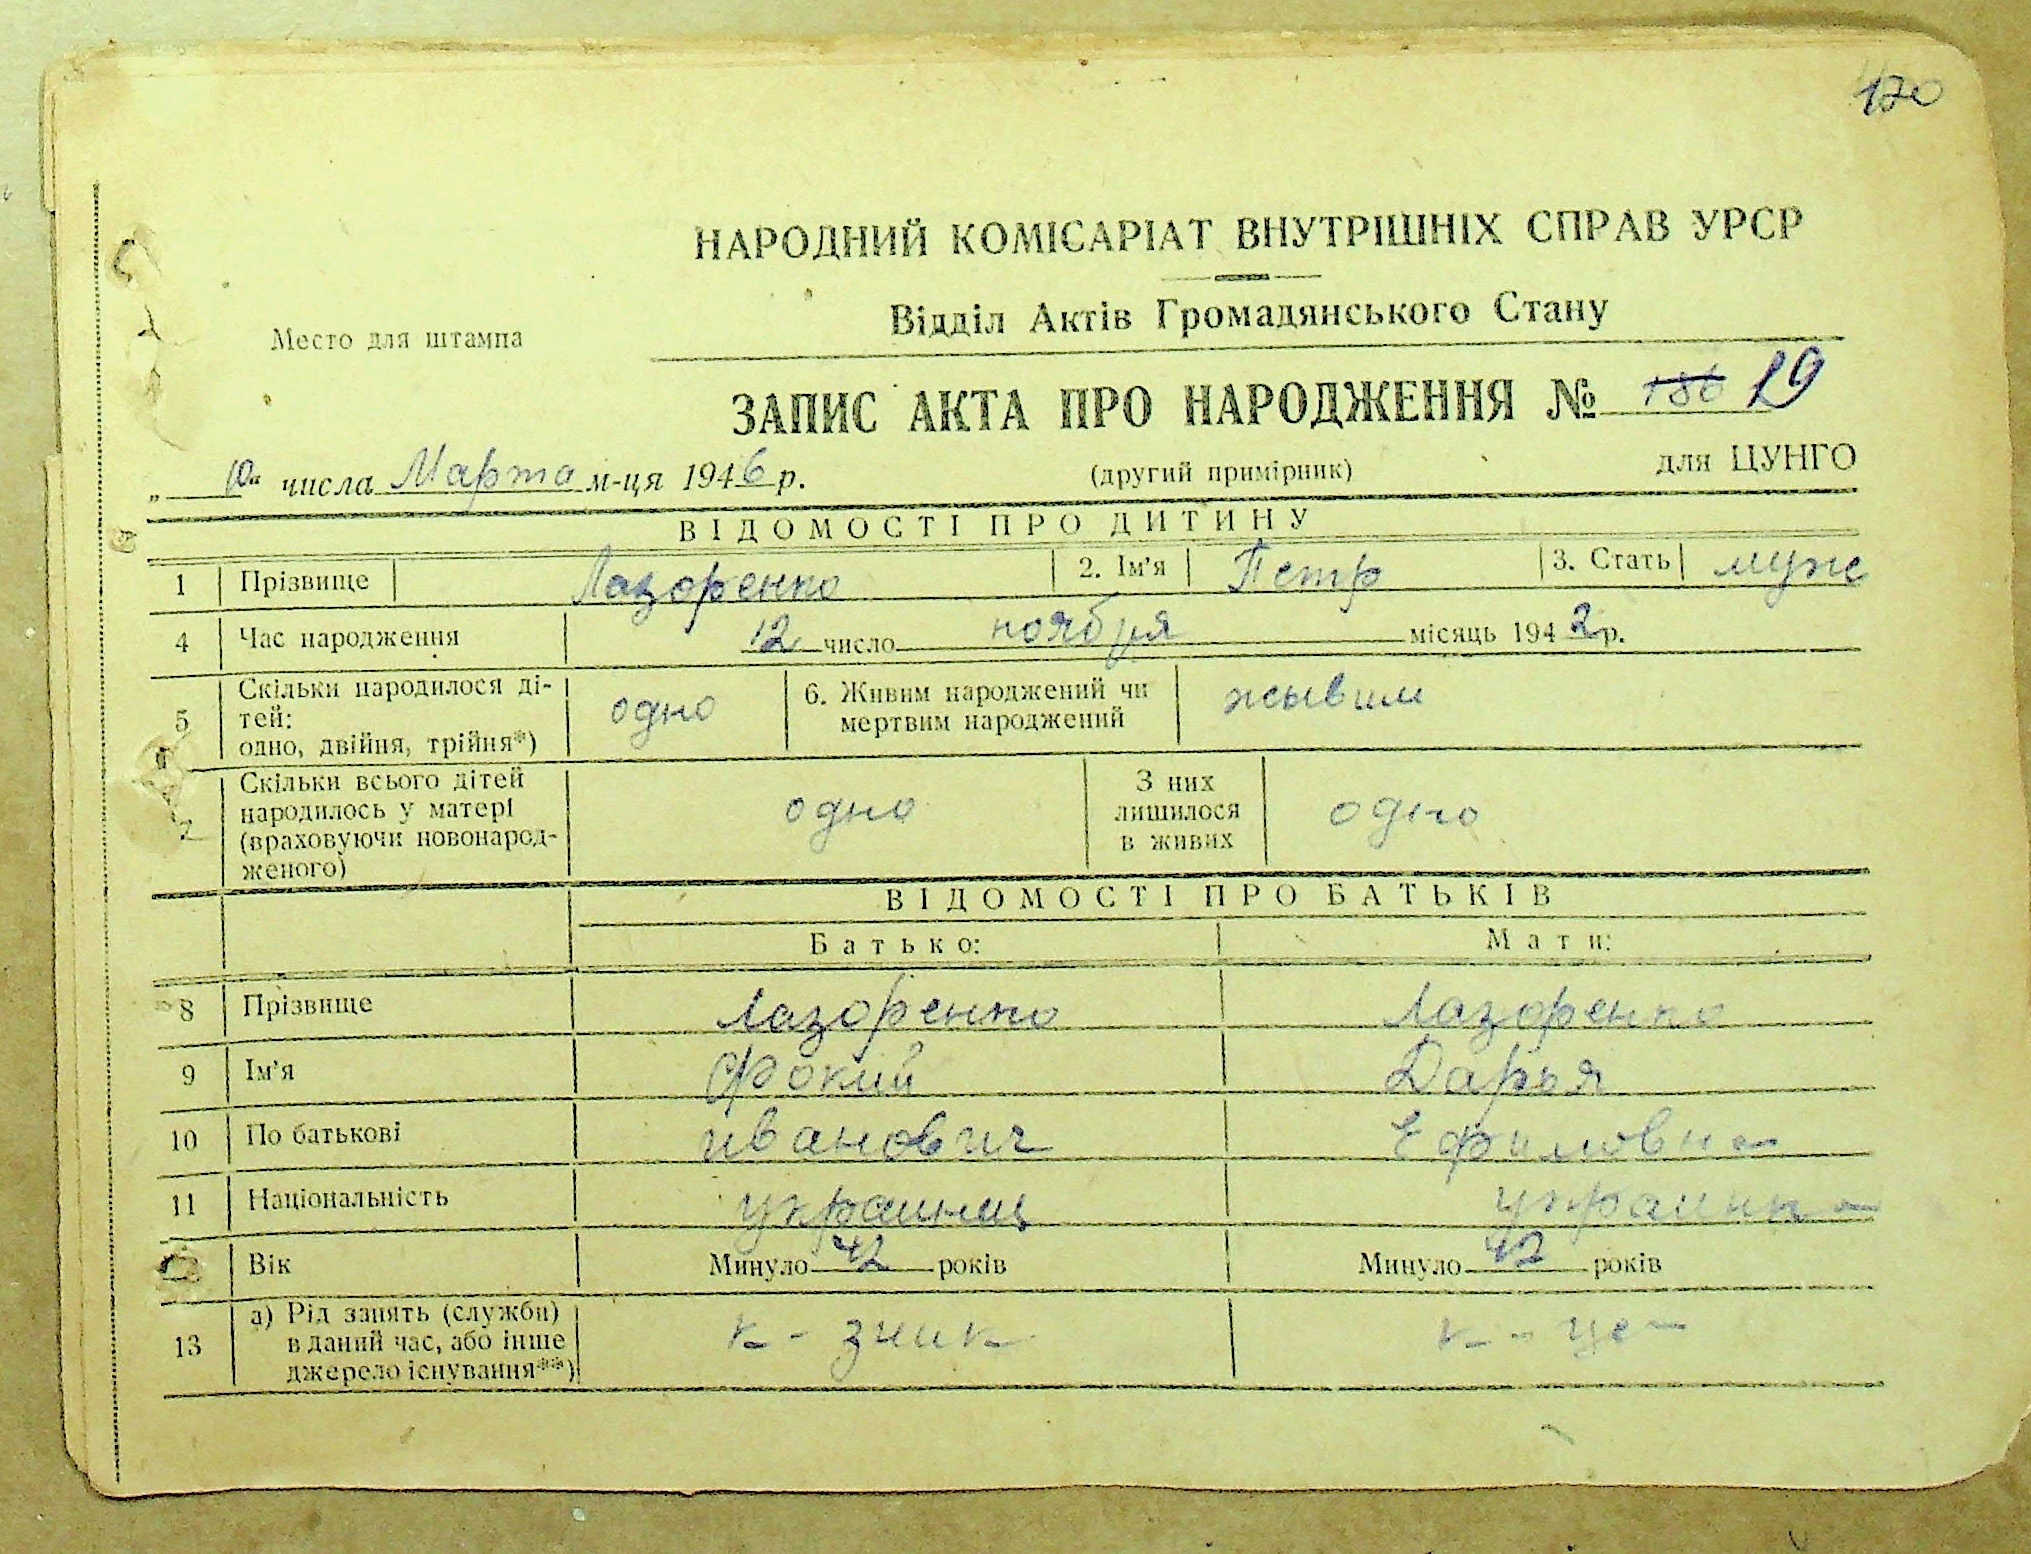 170
НАРОДНИЙ КОМІСАРІАТ ВНУТРІШНІХ СПРАВ УРСР
Відділ Актів Громадянського Стану
Место для штампа
ЗАПИС АКТА ПРО НАРОДЖЕННЯ № 186 19
„10“ числа Марта м-ця 1946 р. (другий примірник) для ЦУНГО
ВІДОМОСТІ ПРО ДИТИНУ
1 Прізвище Лазоренко 2. Ім’я Петр 3. Стать муж
4 Час народження 12 число ноября місяць 1942 р.
5 Скільки народилося ді-
тей:
одно, двійня, трійня*) одно 6. Живим народжений чи
мертвим народжений жывим
7 Скільки всього дітей
народилось у матері
(враховуючи новонарод-
женого) одно З них
лишилося
в живих одно
ВІДОМОСТІ ПРО БАТЬКІВ
Батько: Мати:
8 Прізвище Лазоренко Лазоренко
9 Ім’я Фокий Дарья
10 По батькові иванович Ефимовна
11 Національність украинец украинка
Вік Минуло 42 років Минуло 42 років
13 а) Рід занять (служби)
в даний час, або інше
джерело існування**) к-зник к-ца